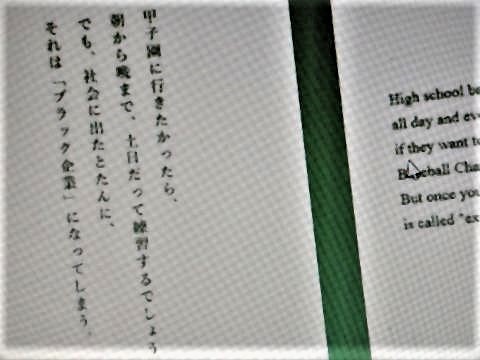 甲子園に行きたかったら、
朝から晩まで、土日だって練習するでしょう
でも、社会に出たとたんに、
それは「ブラック企業」になってしまう。
High school
all day and
if they want
Baseball
But once you
is called